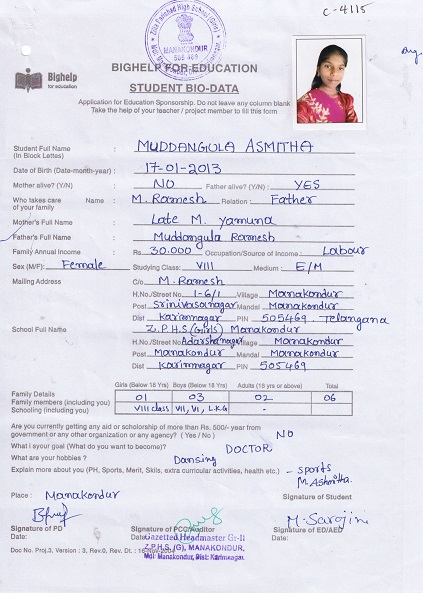 C-4115
Zilla Parishad High School (Girls)
MANAKONDUR
505 469
Bighelp
for education
BIGHELP FOR EDUCATION
STUDENT BIO-DATA
Application for Education Sponsorship. Do not leave any column blank
Take the help of your teacher / project member to fill this form
Student Full Name : MUDDANGULA ASMITHA
(In Block Lettes)
Date of Birth (Date-month-year) : 17-01-2013
Mother alive? (Y/N) : NO Father alive? (Y/N) : YES
Who takes care Name : M. Ramesh Relation : Father
of your family
Mother's Full Name : Late M. yamuna
Father's Full Name : Muddangula Ramesh
Family Annual Income : Rs 30.000 Occupation/Source of Income: Labour
Sex (M/F): Female Studying Class: VIII Medium : E/M
Mailing Address C/o M. Ramesh
H.No./Street No. 1-6/1 Village Manakondur
Post Srinivasanagar Mandal Manakondur
Dist Karimnagar PIN 505469. Telangana
School Full Name Z.P.H.S. (Girls) Manakondur
H.No./Street No. Adarshanagar Village Manakondur
Post Manakondur Mandal Manakondur
Dist Karimnagar PIN 505469
Girls (Below 18 Yrs) Boys (Below 18 Yrs) Adults (18 yrs or above) Total
Family Details
Family members (including you) 01 03 02 06
Schooling (including you) VIII class VII, VI, L.K.G -
Are you currently getting any aid or scholarship of more than Rs. 500/- year from
government or any other organization or any agency? (Yes / No ) NO
What i syour goal (What do you want to become)? DOCTOR
What are your hobbies ? Dansing
Explain more about you (PH, Sports, Merit, Skills, extra curricular activities, health etc.) - sports
M. Ashmitha.
Place : Manakondur Signature of Student
M. Sarojini
Signature of PD Signature of PCC/Auditor Signature of ED/AED
Date: Date: Date:
Gazetted Headmaster Gr-II
Z.P.H.S. (G), MANAKONDUR,
Mdl: Manakondur, Dist: Karimnagar.
Doc No. Proj.3, Version : 3, Rev.0, Rev. Dt. : 16-Nov-2004